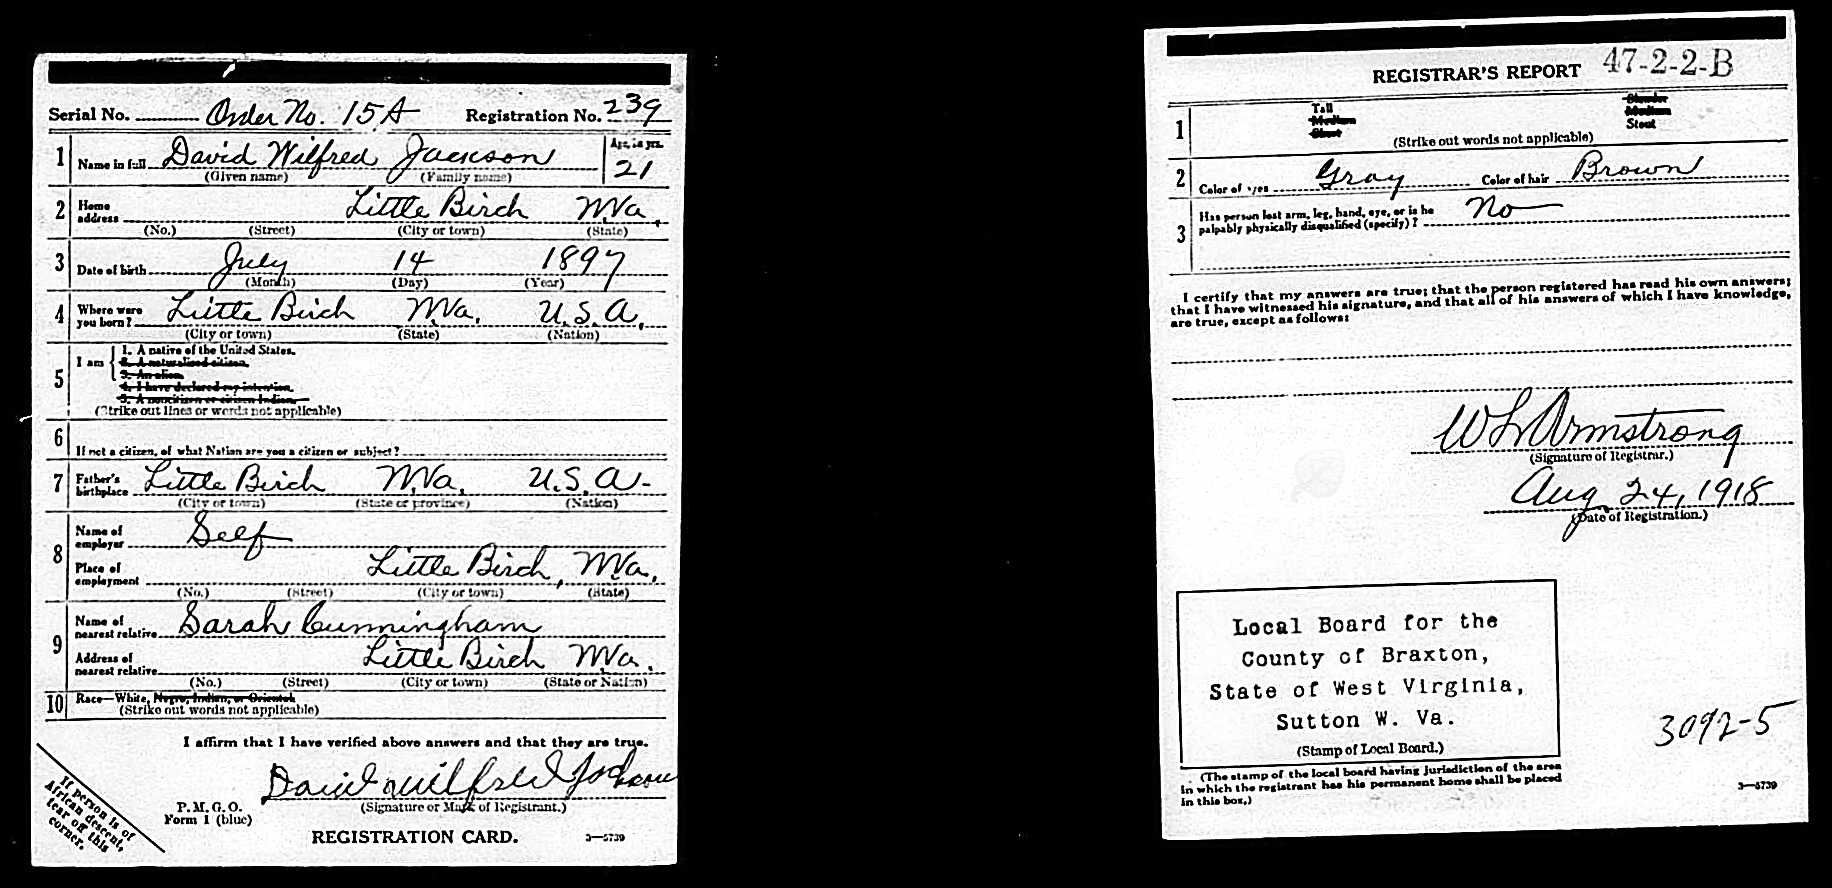 Serial No. Order No. 15A Registration No. 239
1 Name in full David Wilfred Jackson Age, in yrs. 21
(Given name) (Family name)
2 Home address Little Birch W.Va.
(No.) (Street) (City or town) (State)
3 Date of birth July 14 1897
(Month) (Day) (Year)
4 Where were you born? Little Birch W.Va. U.S.A.
(City or town) (State) (Nation)
5 I am
1. A native of the United States.
2. A naturalized citizen.
3. An alien.
4. I have declared my intention.
5. A noncitizen or citizen Indian.
(Strike out lines or words not applicable)
6 If not a citizen, of what Nation are you a citizen or subject?
7 Father's birthplace Little Birch W.Va. U.S.A.
(City or town) (State or province) (Nation)
8 Name of employer Self
Place of employment Little Birch, W.Va.
(No.) (Street) (City or town) (State)
9 Name of nearest relative Sarah Cunningham
Address of nearest relative Little Birch W.Va.
(No.) (Street) (City or town) (State or Nation)
10 Race—White, Negro, Indian, or Oriental
(Strike out words not applicable)
I affirm that I have verified above answers and that they are true.
David Wilfred Jackson
P. M. G. O. (Signature or Mark of Registrant.)
Form 1 (blue)
If person is of
African descent,
tear off this
corner.
REGISTRATION CARD. 3—5739
REGISTRAR'S REPORT 47-2-2-B
1 Tall Slender
Medium Medium
Short Stout
(Strike out words not applicable)
2 Color of eyes Gray Color of hair Brown
3 Has person lost arm, leg, hand, eye, or is he No
palpably physically disqualified (specify)?
I certify that my answers are true; that the person registered has read his own answers;
that I have witnessed his signature, and that all of his answers of which I have knowledge,
are true, except as follows:
W L Armstrong
(Signature of Registrar.)
Aug 24, 1918
(Date of Registration.)
Local Board for the
County of Braxton,
State of West Virginia,
Sutton W. Va.
(Stamp of Local Board.)
3092-5
(The stamp of the local board having jurisdiction of the area
in which the registrant has his permanent home shall be placed
in this box.)
3—5739